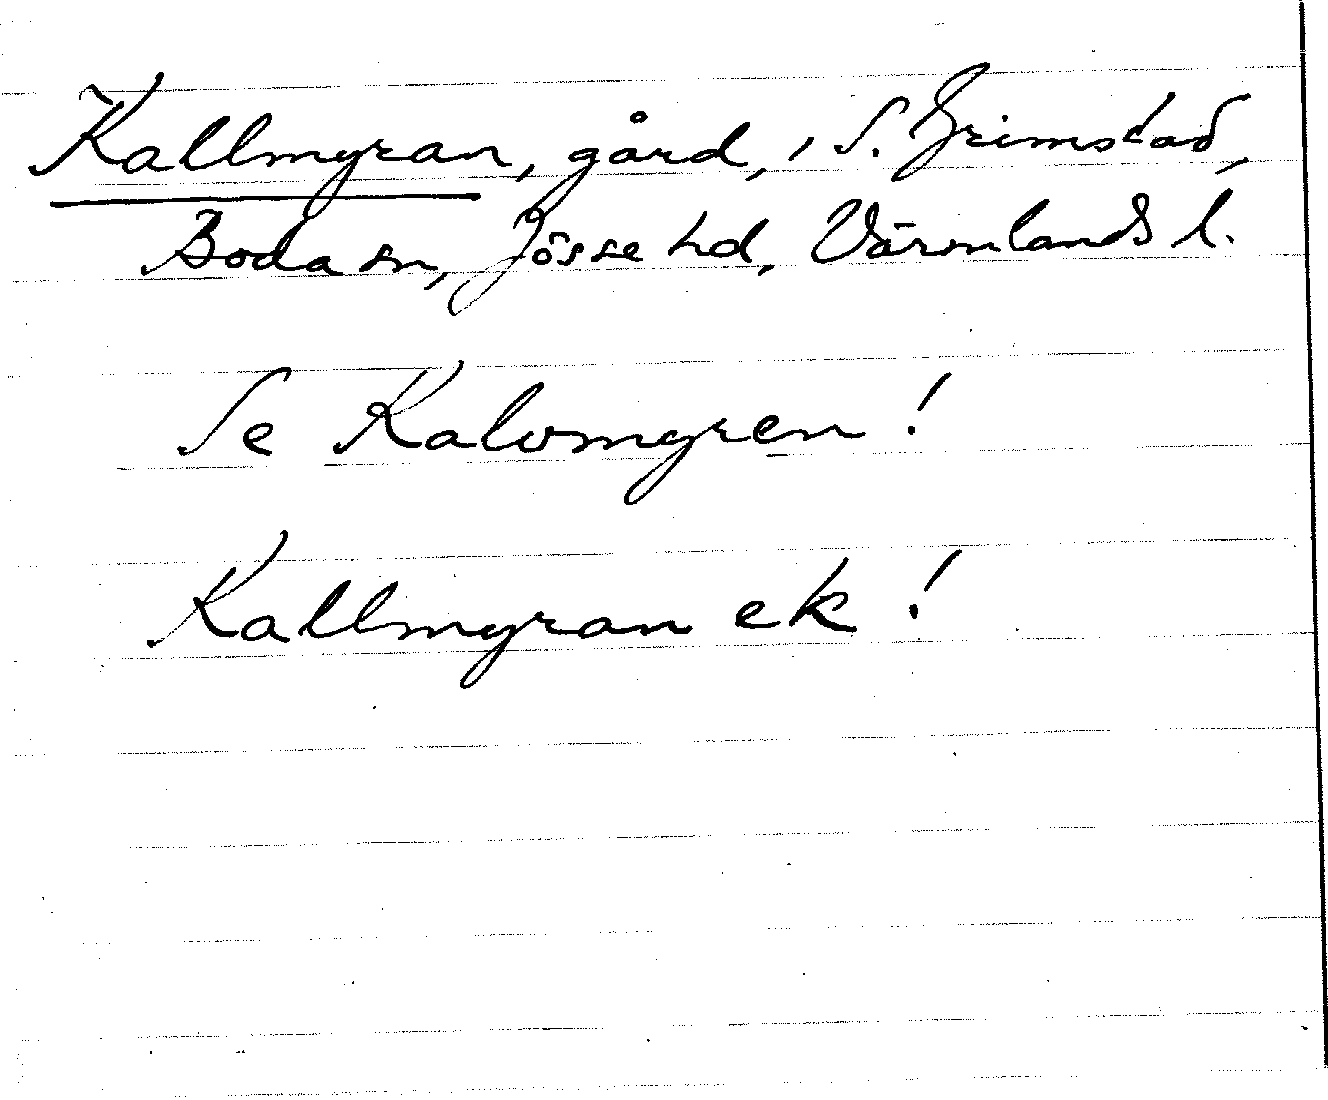 Kallmyran, gård, i S. Grimstad,
Boda sn, Jösse hd, Värmlands l.
Se Kalvmyren!
Kallmyran ek!